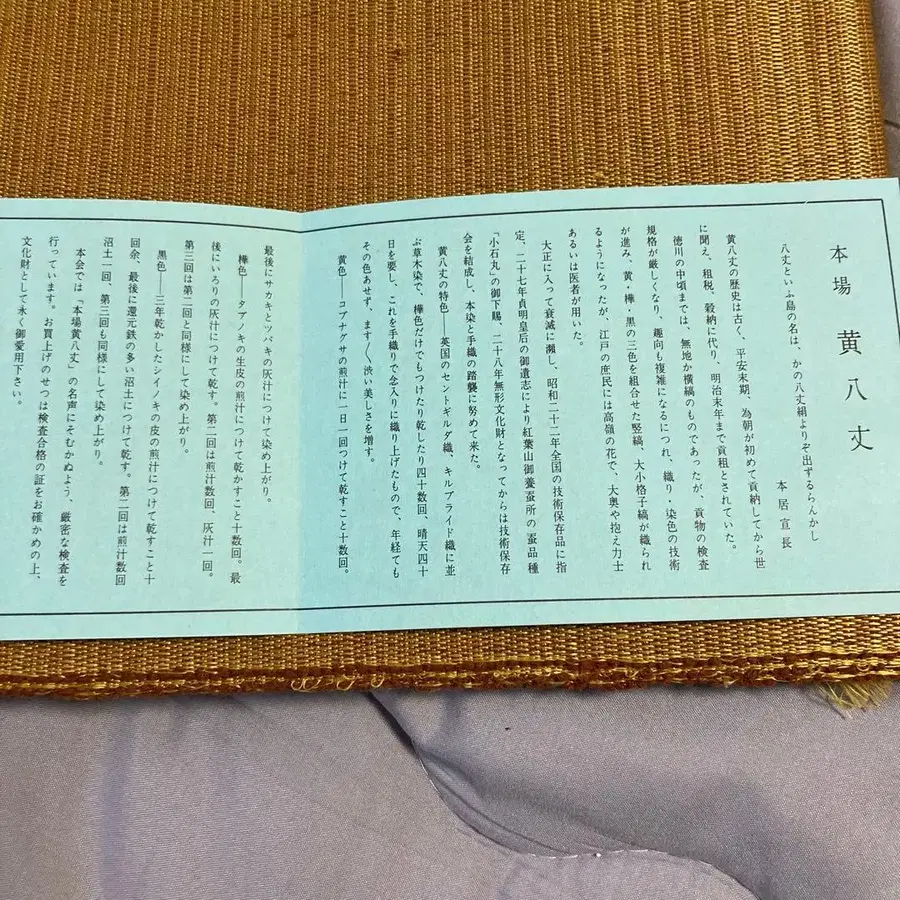 本場 黄八丈
八丈といふ島の名は、かの八丈絹よりぞ出ずるらんかし
本居宣長
黄八丈の歴史は古く、平安末期、為朝が初めて貢納してから世
に聞え、租税、穀納に代り、明治末年まで貢租とされていた。
徳川の中頃までは、無地か横縞のものであったが、貢物の検査
規格が厳しくなり、趣向も複雑になるにつれ、織り・染色の技術
が進み、黄・樺・黒の三色を組合せた竪縞、大小格子縞が織られ
るようになったが、江戸の庶民には高嶺の花で、大奥や抱え力士
あるいは医者が用いた。
大正に入って衰滅に瀕し、昭和二十二年全国の技術保存品に指
定、二十七年貞明皇后の御遺志により紅葉山御養蚕所の蚕品種
「小石丸」の御下賜、二十八年無形文化財となってからは技術保存
会を結成し、本染と手織の踏襲に努めて来た。
黄八丈の特色――英国のセントギルダ織、キルブライド織に並
ぶ草木染で、樺色だけでもつけたり乾したり四十数回、晴天四十
日を要し、これを手織りで念入りに織り上げたもので、年経ても
その色あせず、ます〳〵渋い美しさを増す。
黄色――コブナグサの煎汁に一日一回つけて乾すこと十数回。
最後にサカキとツバキの灰汁につけて染め上がり。
樺色――タブノキの生皮の煎汁につけて乾かすこと十数回。最
後にいろりの灰汁につけて乾す。第二回は煎汁数回、灰汁一回。
第三回は第二回と同様にして染め上がり。
黒色――三年乾かしたシイノキの皮の煎汁につけて乾すこと十
回余、最後に還元鉄の多い沼土につけて乾す。第二回は煎汁数回
沼土一回、第三回も同様にして染め上がり。
本会では「本場黄八丈」の名声にそむかぬよう、厳密な検査を
行っています。お買上げのせつは検査合格の証をお確かめの上、
文化財として永く御愛用下さい。